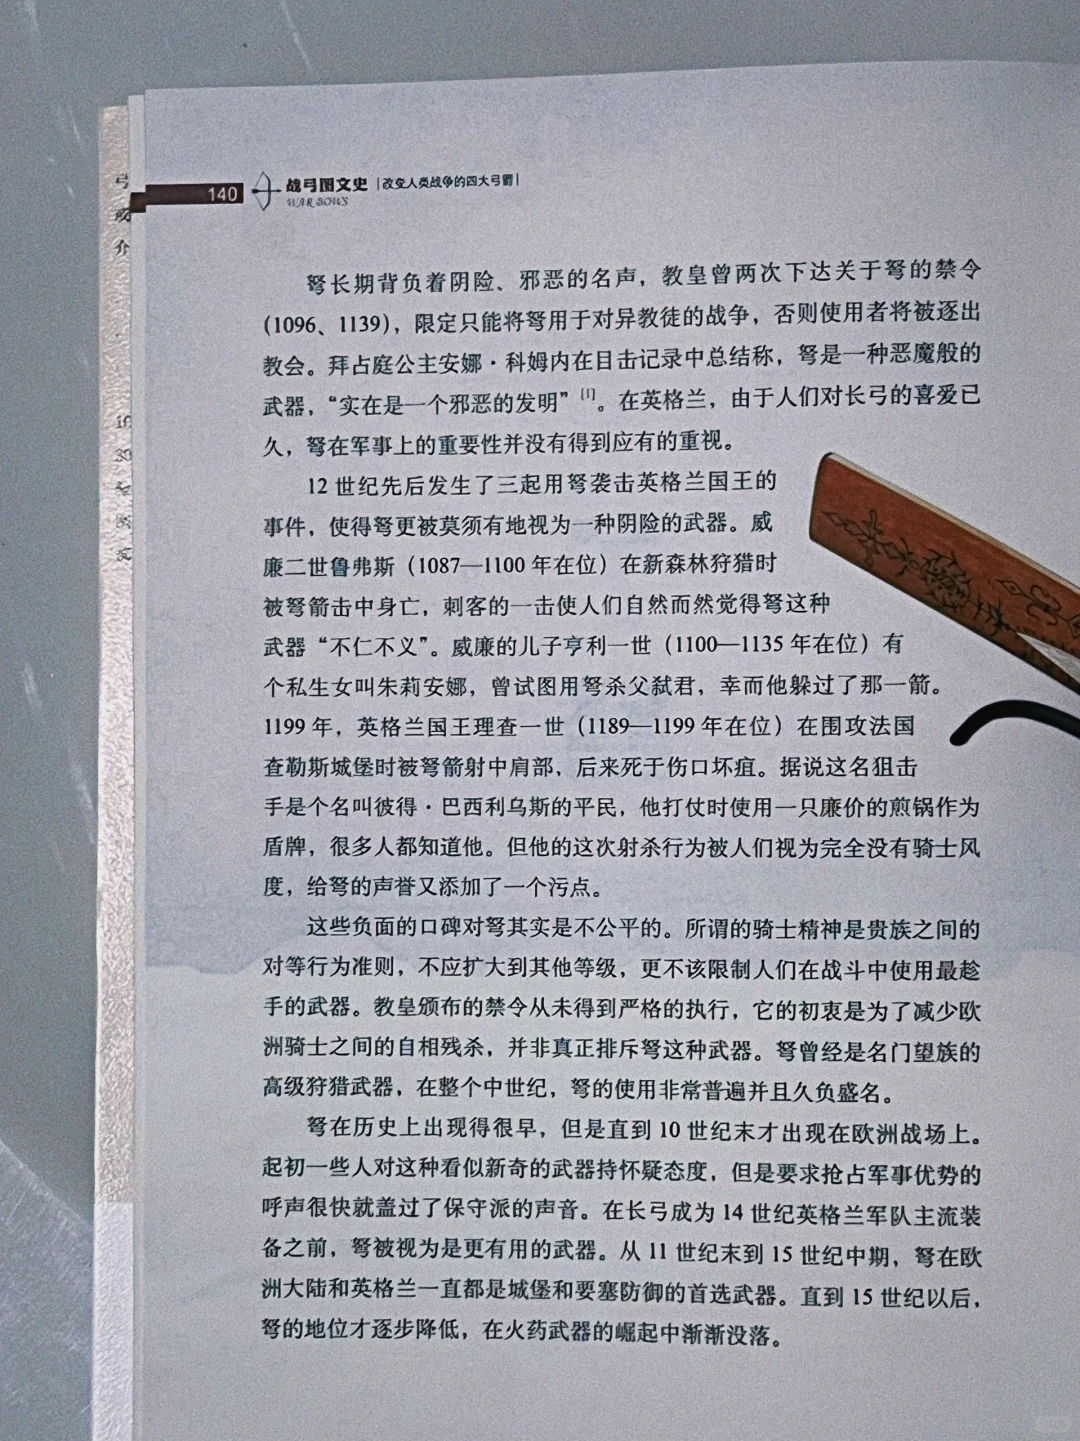 140
战弓图文史 |改变人类战争的四大弓箭|
WAR BOWS
弩长期背负着阴险、邪恶的名声，教皇曾两次下达关于弩的禁令
(1096、1139)，限定只能将弩用于对异教徒的战争，否则使用者将被逐出
教会。拜占庭公主安娜·科姆内在目击记录中总结称，弩是一种恶魔般的
武器，“实在是一个邪恶的发明”[1]。在英格兰，由于人们对长弓的喜爱已
久，弩在军事上的重要性并没有得到应有的重视。
12 世纪先后发生了三起用弩袭击英格兰国王的
事件，使得弩更被莫须有地视为一种阴险的武器。威
廉二世鲁弗斯（1087—1100 年在位）在新森林狩猎时
被弩箭击中身亡，刺客的一击使人们自然而然觉得弩这种
武器“不仁不义”。威廉的儿子亨利一世（1100—1135 年在位）有
个私生女叫朱莉安娜，曾试图用弩杀父弑君，幸而他躲过了那一箭。
1199 年，英格兰国王理查一世（1189—1199 年在位）在围攻法国
查勒斯城堡时被弩箭射中肩部，后来死于伤口坏疽。据说这名狙击
手是个名叫彼得·巴西利乌斯的平民，他打仗时使用一只廉价的煎锅作为
盾牌，很多人都知道他。但他的这次射杀行为被人们视为完全没有骑士风
度，给弩的声誉又添加了一个污点。
这些负面的口碑对弩其实是不公平的。所谓的骑士精神是贵族之间的
对等行为准则，不应扩大到其他等级，更不该限制人们在战斗中使用最趁
手的武器。教皇颁布的禁令从未得到严格的执行，它的初衷是为了减少欧
洲骑士之间的自相残杀，并非真正排斥弩这种武器。弩曾经是名门望族的
高级狩猎武器，在整个中世纪，弩的使用非常普遍并且久负盛名。
弩在历史上出现得很早，但是直到 10 世纪末才出现在欧洲战场上。
起初一些人对这种看似新奇的武器持怀疑态度，但是要求抢占军事优势的
呼声很快就盖过了保守派的声音。在长弓成为 14 世纪英格兰军队主流装
备之前，弩被视为是更有用的武器。从 11 世纪末到 15 世纪中期，弩在欧
洲大陆和英格兰一直都是城堡和要塞防御的首选武器。直到 15 世纪以后，
弩的地位才逐步降低，在火药武器的崛起中渐渐没落。